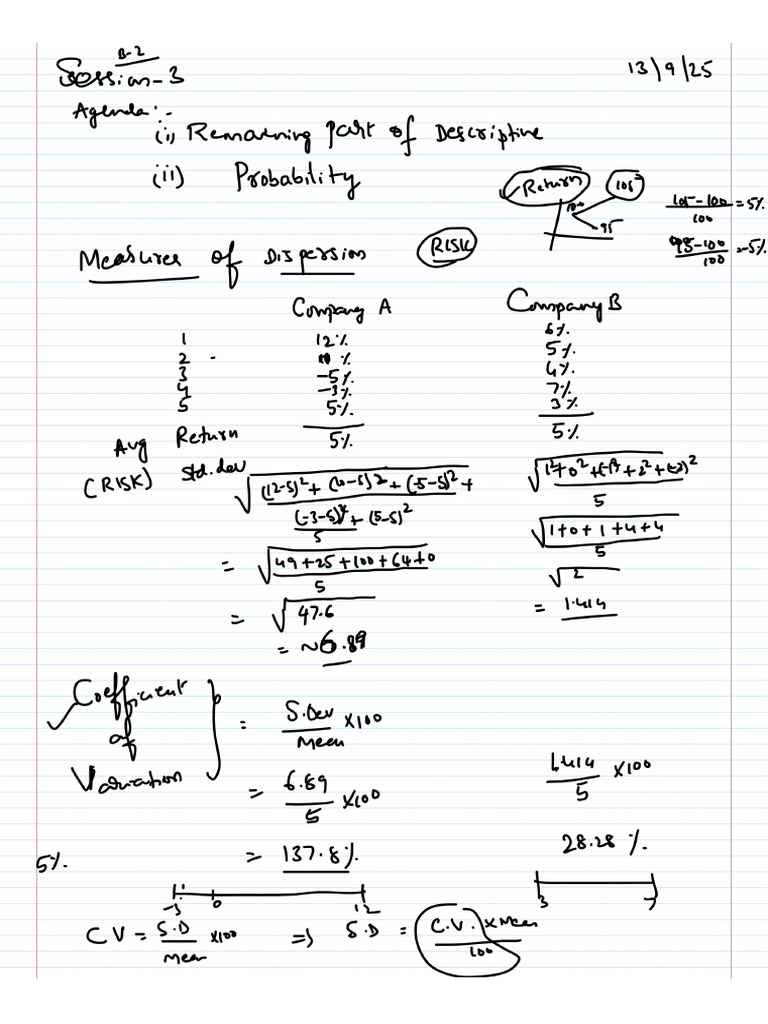 B-2
Session-3
13/9/25
Agenda:-
(i) Remaining part of Descriptive
(ii) Probability
Return
105
100
95
105-100/100 = 5%
95-100/100 = -5%
Measures of Dispersion
RISK
Company A Company B
1 12% 6%
2 - 10% 5%
3 -5% 4%
4 -3% 7%
5 5% 3%
Avg Return 5% 5%
(RISK) Std.dev √((12-5)²+(10-5)²+(-5-5)²+(-3-5)²+(5-5)²/5) √(1²+0²+(-1)²+2²+(-2)²/5)
= √(49+25+100+64+0/5) √(1+0+1+4+4/5)
= √47.6 √2
= ~6.89 = 1.414
Coefficient of Variation } = S.Dev/Mean ×100
= 6.89/5 ×100 1.414/5 ×100
= 137.8% 28.28%
5%
0 12 3 7
CV = S.D/Mean ×100 => S.D = C.V. × Mean/100